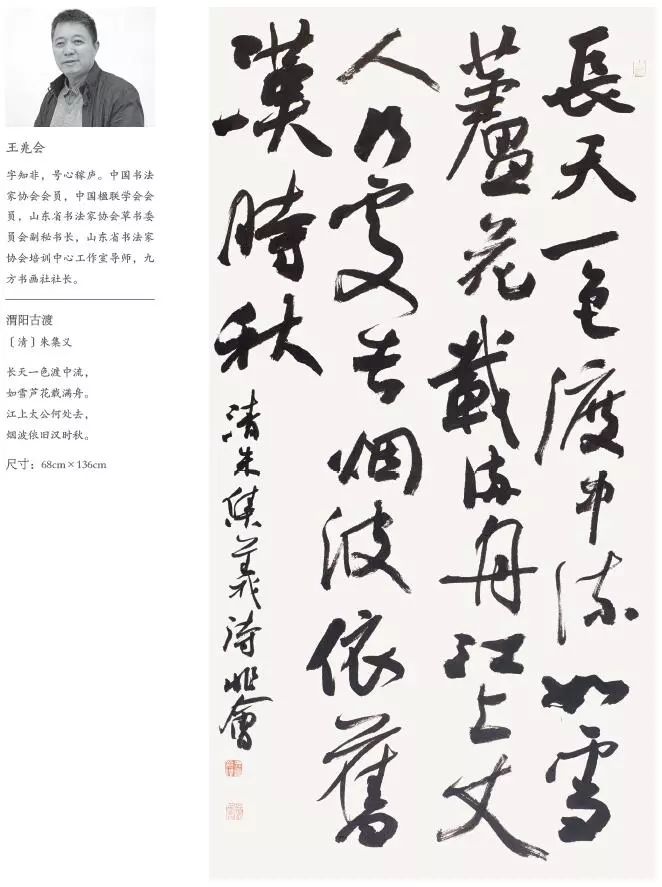 王兆会
字知非，号心稼庐。中国书法
家协会会员，中国楹联学会会
员，山东省书法家协会草书委
员会副秘书长，山东省书法家
协会培训中心工作室导师，九
方书画社社长。
渭阳古渡
〔清〕朱集义
长天一色渡中流，
如雪芦花载满舟。
江上太公何处去，
烟波依旧汉时秋。
尺寸：68cm×136cm
長天一色渡中流如雪
蘆花載滿舟江上丈
人何處去烟波依舊
漢時秋
清朱集義詩兆會